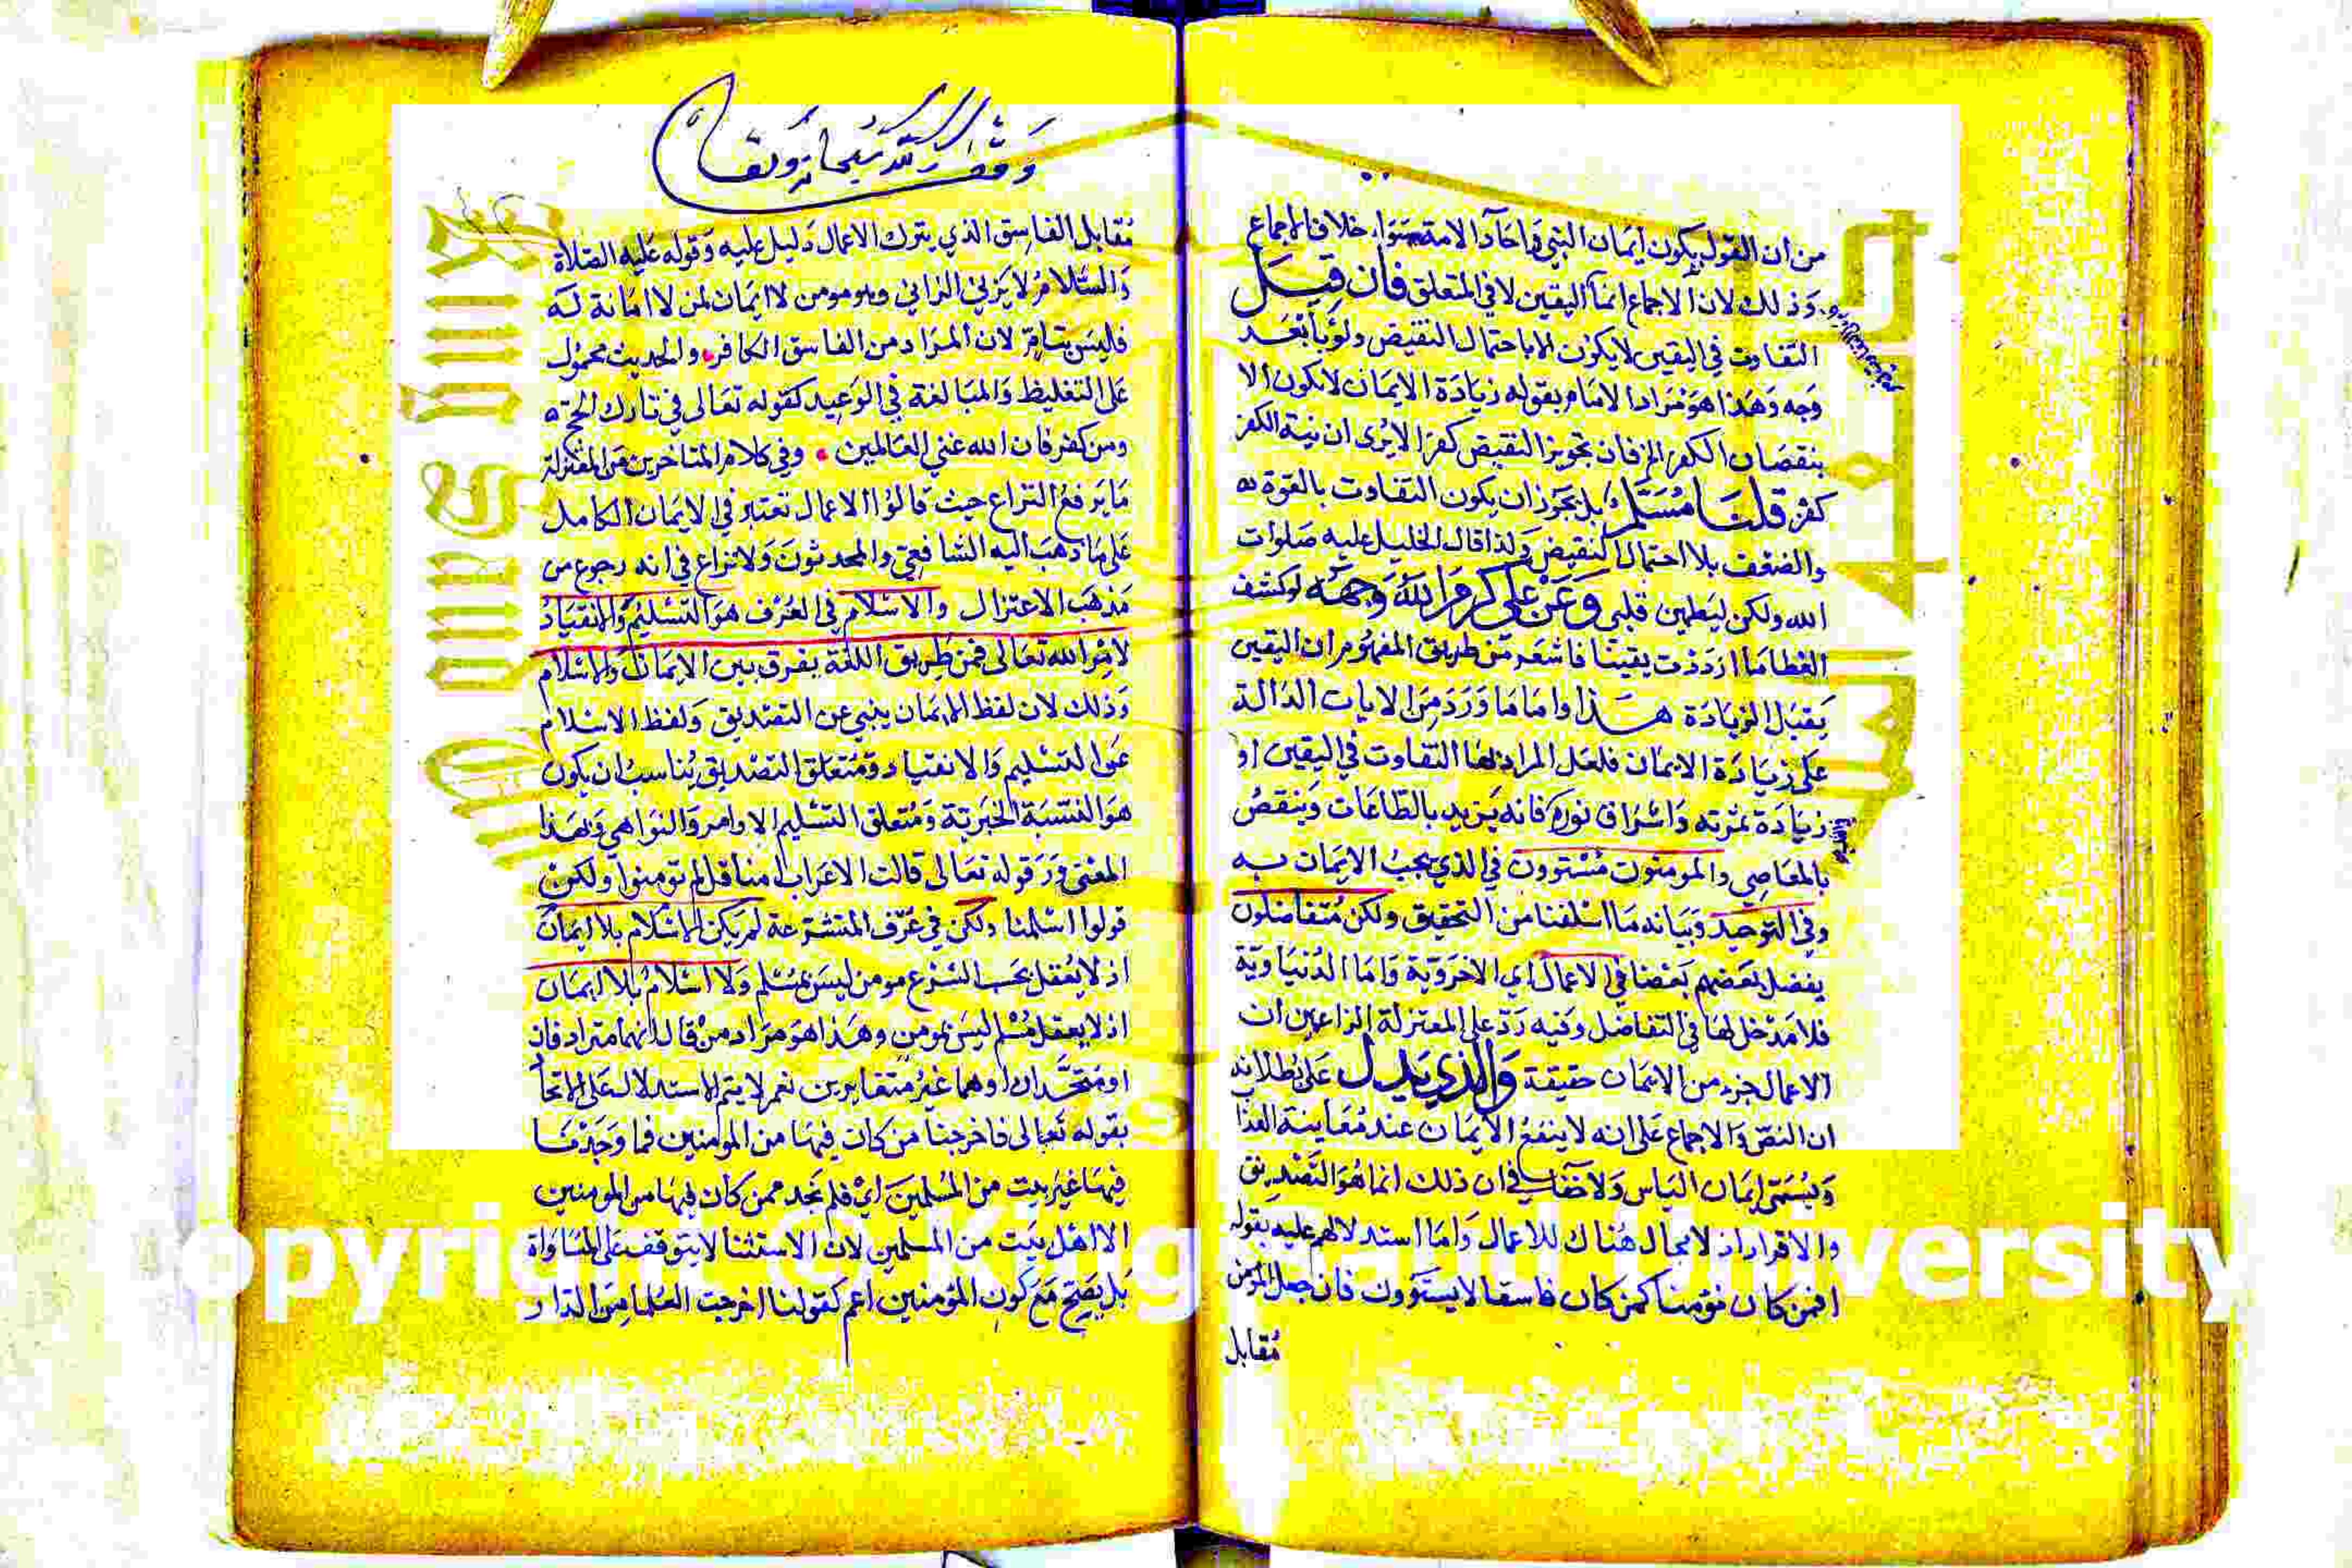 من ان القول بكون ايمان النبي واحاد الامة سواء خلاف الاجماع
وذلك لان الاجماع انما اليقين لا في المتعلق فان قيل
التفاوت في اليقين لا يكون الا باحتمال النقيض ولو بابعد
وجه وهذا هو مراد الامام بقوله زيادة الايمان لا يكون الا
بنقصان الكفر الخ فان تجويز النقيض كفر الا يرى ان نية الكفر
كفر قلنا مسلم بل يجوز ان يكون التفاوت بالقوة
والضعف بلا احتمال النقيض ولذا قال الخليل عليه صلوات
الله ولكن ليطمين قلبي وعن علي كرم الله وجهه لو كشف
الغطا ما ازددت يقينا فاشعر من طريق المفهوم ان اليقين
يقبل الزيادة هذا واما ما ورد من الايات الدالة
على زيادة الايمان فلعل المراد بها التفاوت في اليقين او
زيادة ثمرته واشراق نوره فانه يزيد بالطاعات وينقص
بالمعاصي والمومنون مستوون في الذي يجب الايمان به
وفي التوحيد وبيانه ما اسلفنا من التحقيق ولكن متفاضلون
يفضل بعضهم بعضا في الاعمال اي الاخروية واما الدنياوية
فلا مدخل لها في التفاضل وفيه رد على المعتزلة الزاعمين ان
الاعمال جزء من الايمان حقيقة والذي يدل على بطلانه
ان النص والاجماع على انه لا ينفع الايمان عند معاينة العذا
ويسمى ايمان الياس ولا خفا في ان ذلك انما هو التصديق
والاقرار اذ لا مجال هناك للاعمال واما استدلالهم عليه بقوله
افمن كان مؤمنا كمن كان فاسقا لا يستوون فان جعل المؤمن
مقابل
وقف لله سبحانه وتعالى
مقابل الفاسق الذي يترك الاعمال دليل عليه وقوله عليه الصلاة
والسلام لا يزني الزاني وهو مومن لا ايمان لمن لا امانة له
فليس بتام لان المراد من الفاسق الكافر والحديث محمول
على التغليظ والمبالغة في الوعيد كقوله تعالى في تارك الحج
ومن كفر فان الله غني العالمين وفي كلام المتاخرين من المعتزلة
ما يرفع النزاع حيث قالوا الاعمال تعتبر في الايمان الكامل
على ما ذهب اليه الشافعي والمحدثون ولا نزاع في انه رجوع من
مذهب الاعتزال والاسلام في العرف هو التسليم والانقياد
لامر الله تعالى فمن طريق اللغة يفرق بين الايمان والاسلام
وذلك لان لفظ الايمان ينبي عن التصديق ولفظ الاسلام
عن التسليم والانقياد ومتعلق التصديق يناسب ان يكون
هو النسبة الخبرية ومتعلق التسليم الاوامر والنواهي وبهذا
المعنى ورد قوله تعالى قالت الاعراب امنا قل لم تومنوا ولكن
قولوا اسلمنا ولكن في عرف المتشرعة لم يكن الاسلام بلا ايمان
اذ لا يعقل بحسب الشرع مومن ليس بمسلم ولا اسلام بلا ايمان
اذ لا يعقل مسلم ليس بمومن وهذا هو مراد من قال انهما مترادفان
او متحدان او هما غير متغايرين نعم لا يتم الاستدلال على الاتحا
بقوله تعالى فاخرجنا من كان فيها من المومنين فما وجدنا
فيها غير بيت من المسلمين اي فلم نجد ممن كان فيها من المومنين
الا اهل بيت من المسلمين لان الاستثنا لا يتوقف على المساواة
بل يصح مع كون المؤمنين اعم كقولنا اخرجت العلما من الدار
Copyright © King Saud University